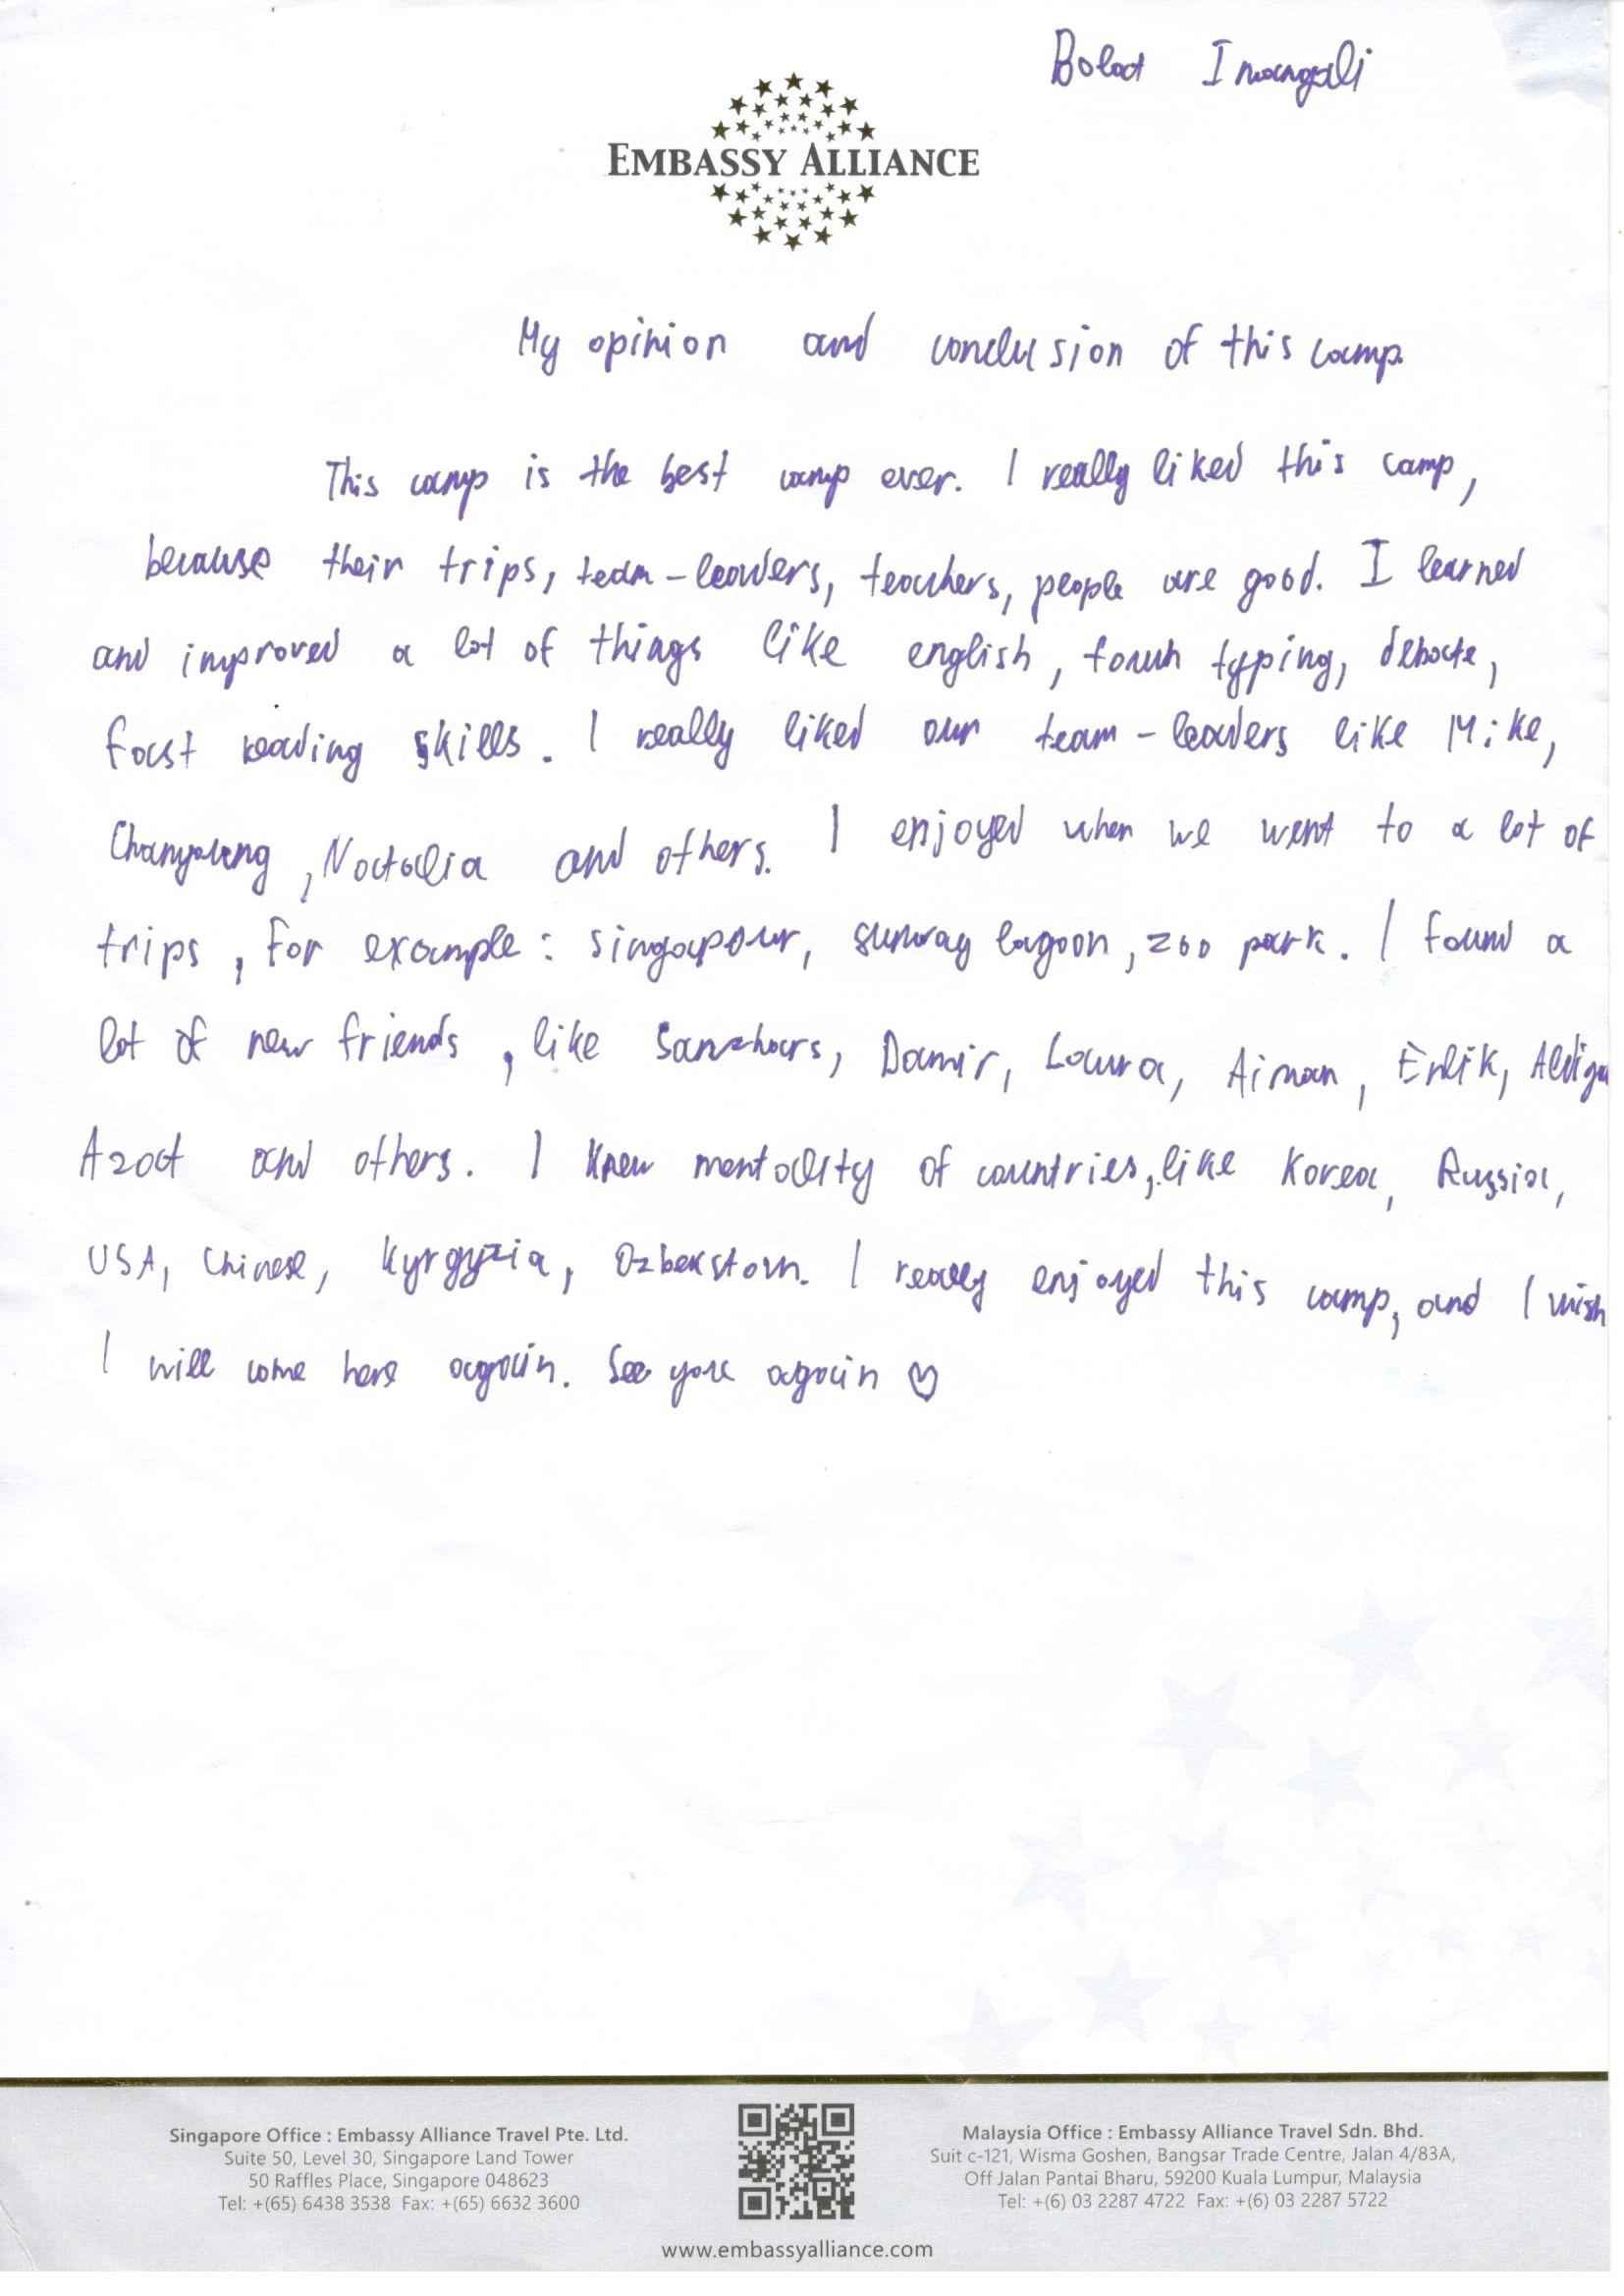 Bolat Imangali
EMBASSY ALLIANCE
My opinion and conclusion of this camp
This camp is the best camp ever. I really liked this camp,
because their trips, team-leaders, teachers, people are good. I learned
and improved a lot of things like english, touch typing, debate,
fast reading skills. I really liked our team-leaders like Mike,
, Natalia and others. I enjoyed when we went to a lot of
trips, for example: singapour, sunway lagoon, zoo park. I found a
lot of new friends, like Sanzhars, Damir, Laura, Aiman, Erlik,
Azat and others. I knew mentality of countries, like Korea, Russia,
USA, Chinese, Kyrgyzia, Ozbekstan. I really enjoyed this camp, and I wish
I will come here again. See you again ♡
Singapore Office : Embassy Alliance Travel Pte. Ltd.
Suite 50, Level 30, Singapore Land Tower
50 Raffles Place, Singapore 048623
Tel: +(65) 6438 3538 Fax: +(65) 6632 3600
Malaysia Office : Embassy Alliance Travel Sdn. Bhd.
Suit c-121, Wisma Goshen, Bangsar Trade Centre, Jalan 4/83A,
Off Jalan Pantai Bharu, 59200 Kuala Lumpur, Malaysia
Tel: +(6) 03 2287 4722 Fax: +(6) 03 2287 5722
www.embassyalliance.com